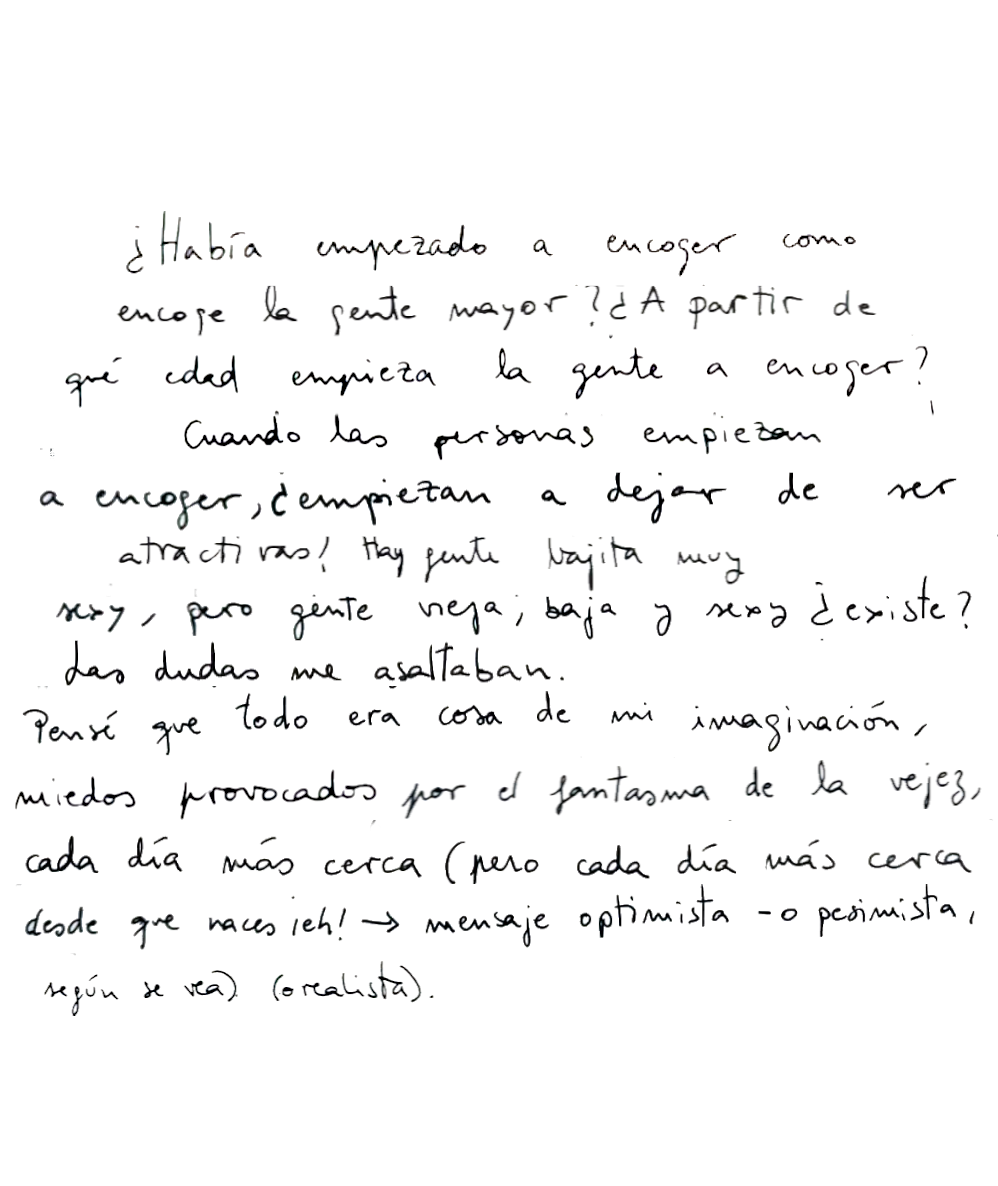 ¿Había empezado a encoger como
encoge la gente mayor? ¿A partir de
qué edad empieza la gente a encoger?
Cuando las personas empiezan
a encoger, ¿empiezan a dejar de ser
atractivas! Hay gente bajita muy
sexy, pero gente vieja, baja y sexy ¿existe?
Las dudas me asaltaban.
Pensé que todo era cosa de mi imaginación,
miedos provocados por el fantasma de la vejez,
cada día más cerca (pero cada día más cerca
desde que naces ¡eh! → mensaje optimista - o pesimista,
según se vea) (o realista).